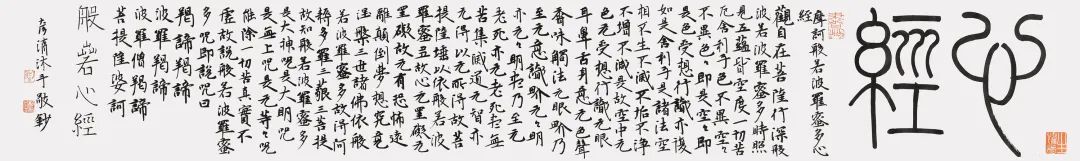 心經
摩訶般若波羅蜜多心
經
觀自在菩薩行深般
若波羅蜜多時照
見五蘊皆空度一切苦
厄舍利子色不異空々
不異色々即是空々即
是色受想行識亦復
如是舍利子是諸法空
相不生不滅不垢不淨
不增不減是故空中无
色无受想行識无眼
耳鼻舌身意无色聲
香味觸法无眼界乃
至无意識界无々明
亦无々明盡乃至无
老死亦无老死盡无
苦集滅道无智亦
无得以无所得故菩
提薩埵依般若波
羅蜜多故心无罣礙无
罣礙故无有恐怖遠
離顛倒夢想究竟
涅槃三世諸佛依般
若波羅蜜多故得阿
耨多羅三藐三菩提
故知般若波羅蜜多
是大神呪是大明呪
是无上呪是无等々呪
能除一切苦真實不
虛故說般若波羅蜜
多呪即說呪曰
羯諦羯諦
波羅羯諦
波羅僧羯諦
菩提薩婆訶
般若心經
彥清沐手敬鈔